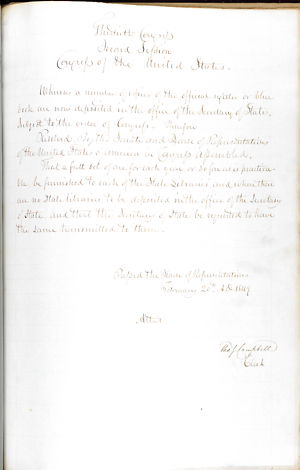 Thirtieth Congress
Second Session
Congress of the United States.
Whereas a number of copies of the official register or blue
book are now deposited in the office of the Secretary of State,
subject to the order of Congress. Therefore
Resolved by the Senate and House of Representatives
of the United States of America in Congress Assembled.
That a full set of one for each year or so far as is practica-
ble be furnished to each of the State Libraries, and where there
are no State libraries to be deposited in the office of the Secretary
of State, and that the Secretary of State be requested to have
the same transmitted to them.
Passed the House of Representatives
February 20th A.D. 1849
Attest
Tho J. Campbell
Clerk